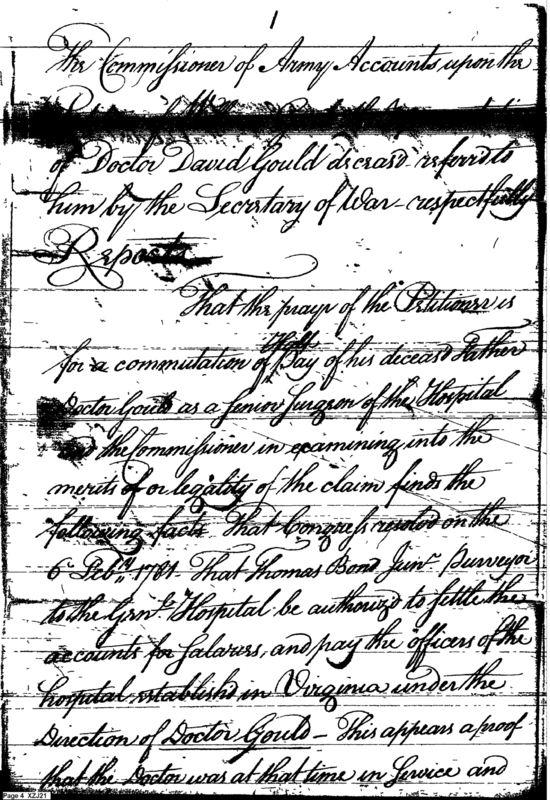 1
The Commissioner of Army Accounts upon the
of Doctor David Gould deceasd referrd to
him by the Secretary of War respectfully
Reports
That the prayr of the Petitioner is
for a commutation of Half Pay of his deceasd Father
Doctor Gould as a Senior Surgeon of the Hospital
and the Commissioner in examining into the
merits of or legality of the claim finds the
following facts That Congress resolvd on the
6 Feby. 1781. That Thomas Bond Junr. Purveyor
to the Genl. Hospital be authorizd to settle the
accounts for Salaries, and pay the officers of the
hospital establishd in Virginia under the
Direction of Doctor Gould – This appears a proof
that the Doctor was at that time in Service and
Page 4 XZJ21